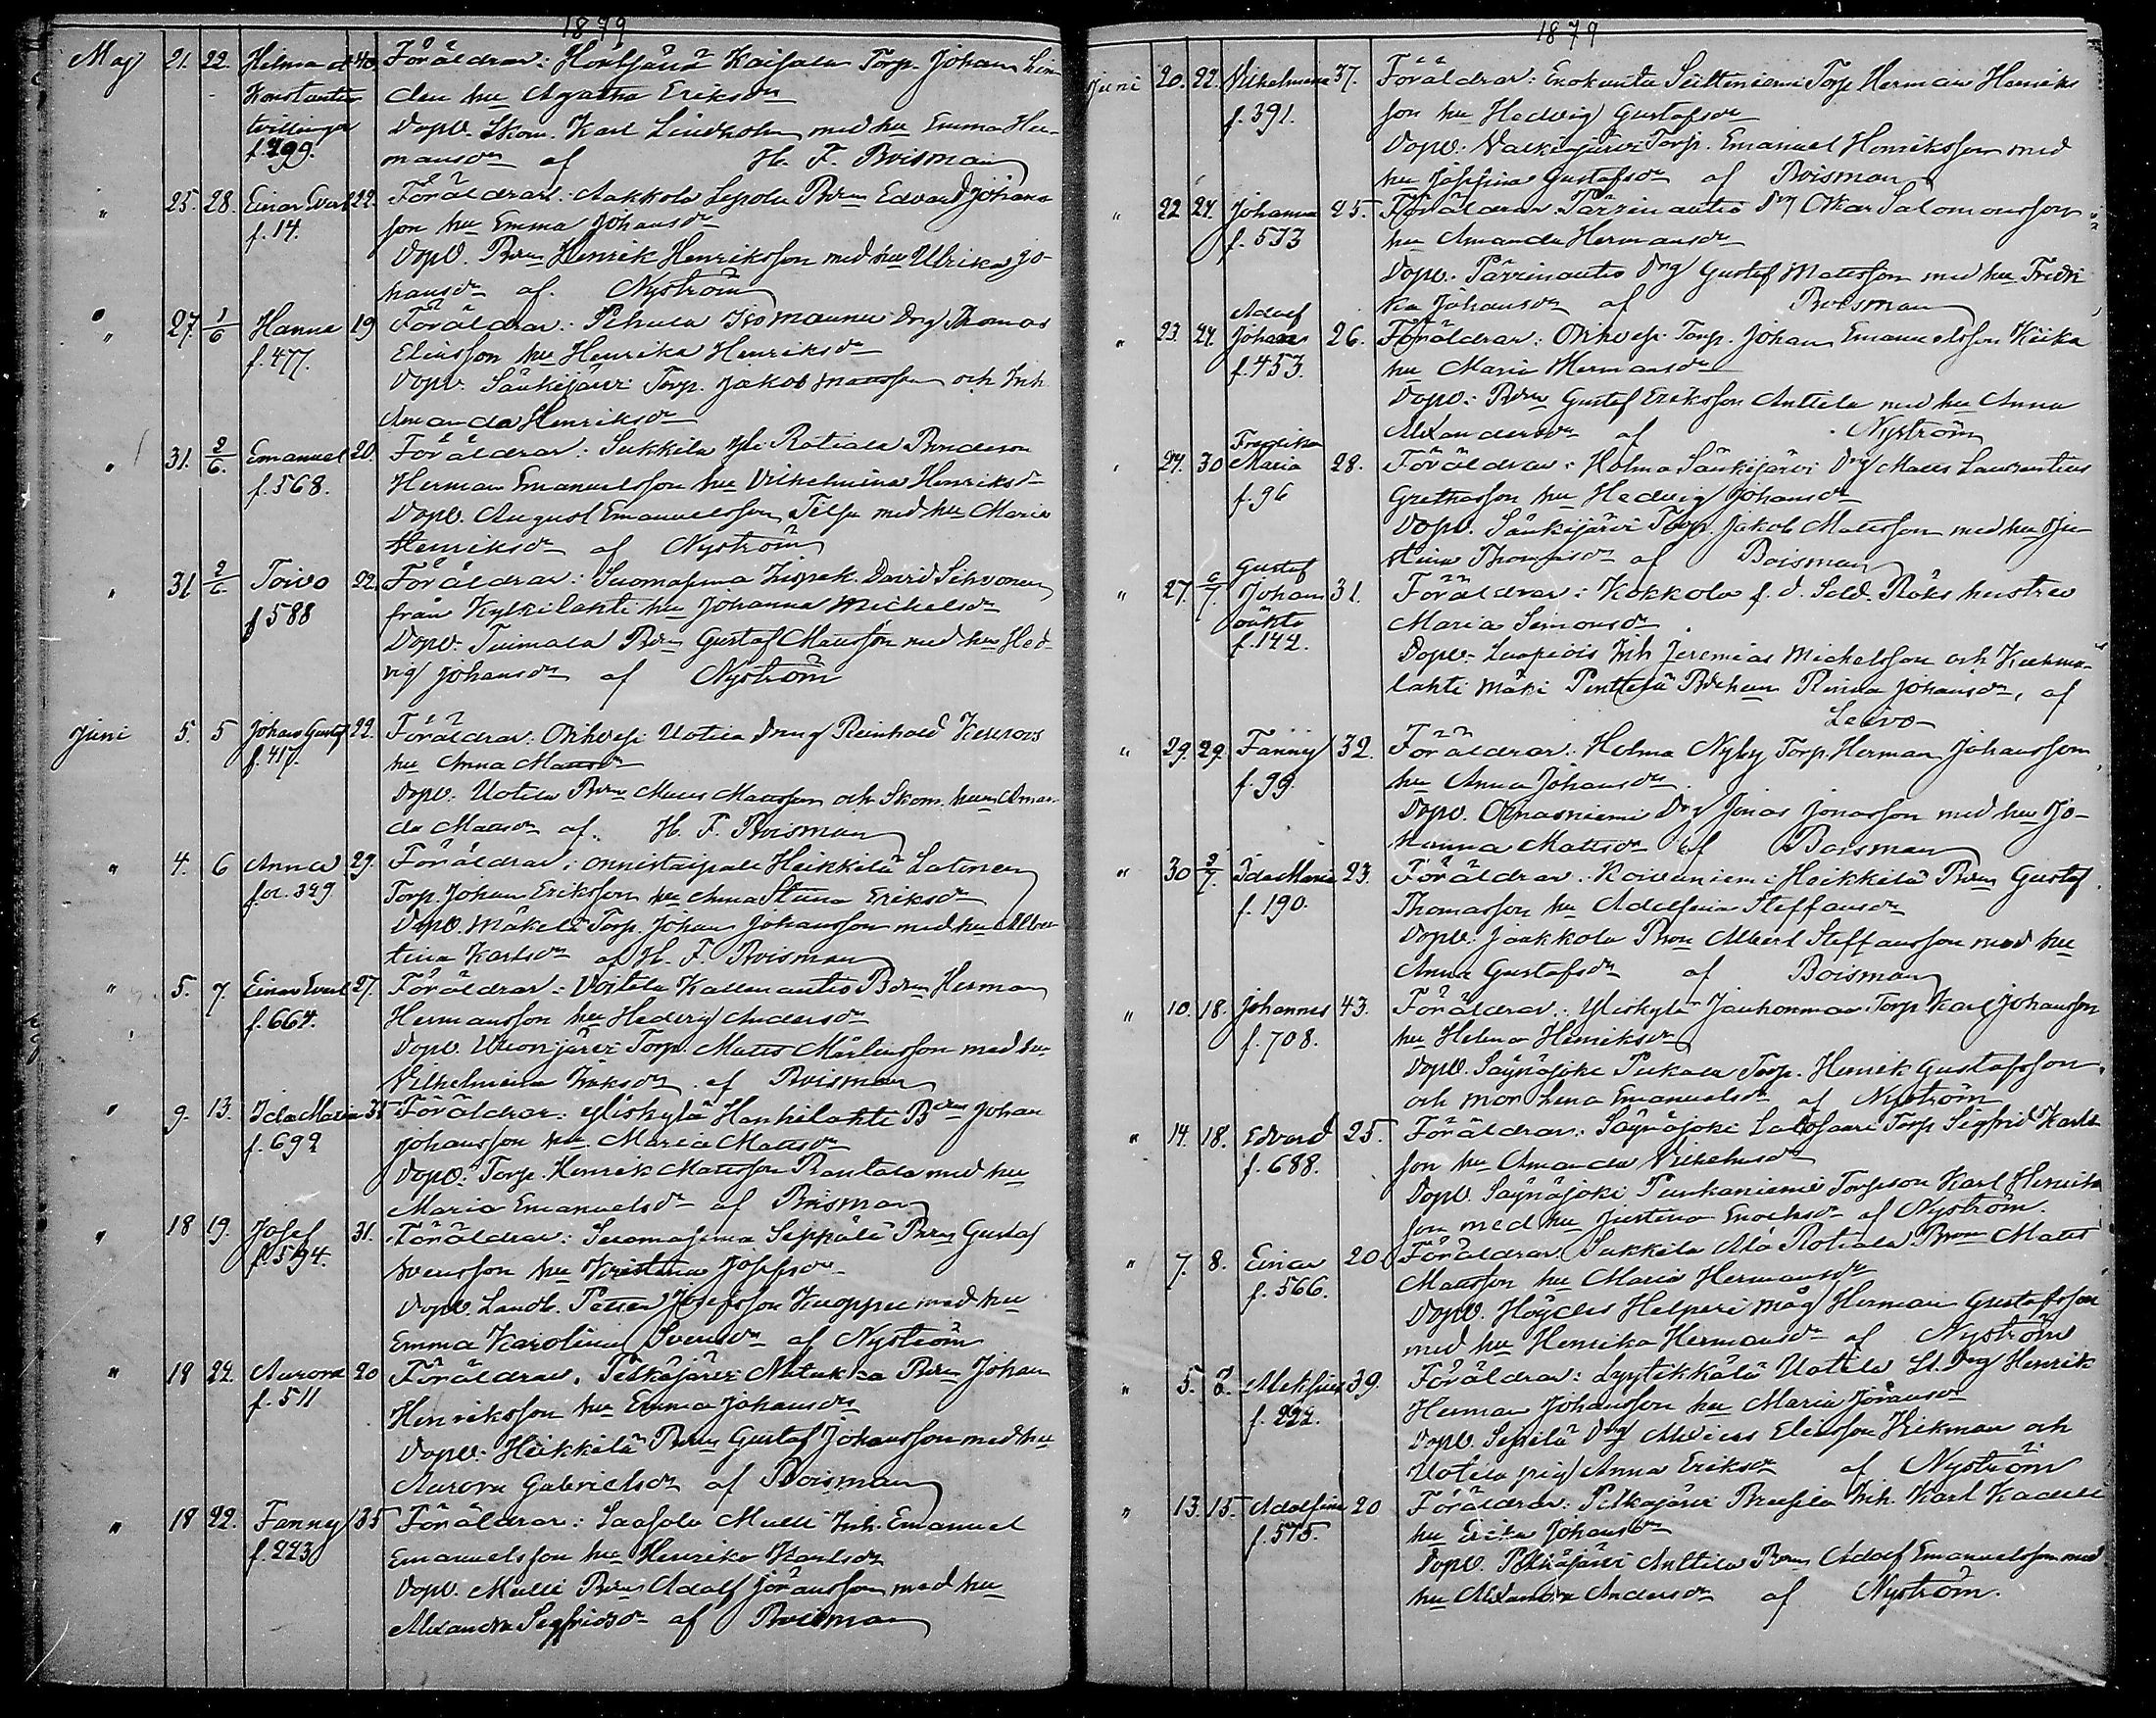 1879
Maj 21. 22. Hilma o 40 Föräldrar: Kaisala Torp. Johan Lin
Konstantin den hu Agatha Eriksdr
tvillingar Dopv. Skom. Karl Lindholm med hu Emma Her-
f. 299. mansdr af H. F. Boisman
" 25. 28. Einar Evert 22. Föräldrar: Aakkola Sepola Bdn Edvard Johans
f. 14. son hu Emma Johansdr
Dopv. Bdn Henrik Henriksson med hu Ulrika Jo-
hansdr af Nyström
" 27. 1/6 Hanna 19 Föräldrar: Pehula Isomaunu Drg Thomas
f. 477. Eliasson hu Henrika Henriksdr
Dopv. Sänkijärvi Torp. Jakob Mattsson och Inh
Amanda Henriksdr
" 31. 2/6. Emanuel 20. Föräldrar: Sukkila Yli Rotiala Bondeson
f. 568. Herman Emanuelsson hu Vilhelmina Henriksdr
Dopv. August Emanuelsson med hu Maria
Henriksdr af Nyström
" 31 2/6 Toivo 22. Föräldrar: Suomasema David Sihvonen
f 588 från Kylkilahti hu Johanna Michelsdr
Dopv. Tuimala Bdn Gustaf Mattsson med hu Hed-
vig Johansdr af Nyström
Juni 5. 5 Johan Gustaf 22. Föräldrar: Orihvesi Uotila Dräng Reinhold
f. 417. hu Anna Mattsdr
Dopv: Uotila Bdn Matts Mattsson och Skom. hu Aman-
da Mattsdr af. H. F. Boisman
" 4. 6 Anna 29. Föräldrar: Onnistaipale Heikkilä Latonen
for. 349 Torp. Johan Eriksson hu Anna Stina Eriksdr
Dopv. Mäkelä Torp. Johan Johansson med hu Alber-
tina Karlsdr af H. F. Boisman
" 5. 7. Einar Evert 27. Föräldrar: Voitila Kallenautio Bdn Herman
f. 664. Hermansson hu Hedvig Andersdr
Dopv. Vuorijärvi Torp. Matts Mårtensson med hu
Vilhelmina Isaksdr af Boisman
" 9. 13. Ida Maria 35 Föräldrar: Yliskylä Hankilahti Bdn Johan
f. 692 Johansson hu Maria Mattsdr
Dopv: Torp. Henrik Mattsson Rautala med hu
Maria Emanuelsdr af Boisman
" 18 19. Josef 31. Föräldrar: Suomasema Seppälä Bdn Gustaf
f. 594. Svensson hu Kristina Josefsdr
Dopv. Landb. Petter Josefsson Knoppu med hu
Emma Karolina Svensdr af Nyström
" 18 22. Aurora 20 Föräldrar, Pelkäjärvi Bdn Johan
f. 511 Henriksson hu Emma Johansdr
Dopv: Heikkilä Bdn Gustaf Johansson med hu
Aurora Gabrielsdr af Boisman
" 18 22. Fanny 35 Föräldrar: Laasola Mulli Inh. Emanuel
f. 223 Emanuelsson hu Henrika Karlsdr
Dopv. Mulli Bdn Adolf Göransson med hu
Alexandra Segfridsdr af Boisman
1879
Juni 20. 22. Vilhelmina 37. Föräldrar: Enokunta Siltteniemi Torp. Herman Henriks
f. 391. son hu Hedvig Gustafsdr
Dopv: Valkijärvi Torp. Emanuel Henriksson med
hu Josefina Gustafsdr af Boisman
" 22 24. Johanna 25. Föräldrar: Pärrinautio Drg Oskar Salomonsson
f. 533 hu Amanda Hermansdr
Dopv. Pärrinautio Drg Gustaf Mattsson med hu Fredri
ka Johansdr af Boisman
Adolf
" 23. 24. Johan 26. Föräldrar: Orihvesi Torp. Johan Emanuelsson Kiika
f. 453. hu Maria Hermansdr
Dopv: Bdn Gustaf Eriksson Anttila med hu Anna
Alexandersdr af Nyström
Fredrika
" 24. 30 Maria 28. Föräldrar: Holma Sänkijärvi Drg Matts Laurentius
f. 96 Grethasson hu Hedvig Johansdr
Dopv. Sänkijärvi Torp. Jakob Mattsson med hu Ju-
stina Thomasdr af Boisman
Gustaf
" 27. 6/7. Johan 31. Föräldrar: Kokkola f. d. Sold. Röks hustru
oäkta Maria Simonsdr
f. 142. Dopv. Laapiois Inh Jeremias Michelsson och Kuhma-
lahti Mäki Penttilä Riina Johansdr, af
Leivo
" 29. 29. Fanny 32. Föräldrar: Holma Nyby Torp. Herman Johansson
f. 99. hu Anna Johansdr
Dopv. Ornasniemi Drg Jonas Jonasson med hu Jo-
hanna Mattsdr af Boisman
" 30 2/7. Ida Maria 23. Föräldrar: Koivuniemi Heikkilä Bdn Gustaf
f. 190. Thomasson hu Adolfina Steffansdr
Dopv: Jaakkola Bdn Albert Steffansson med hu
Anna Gustafsdr af Boisman
" 10. 18. Johannes 43. Föräldrar: Yliskylä Jauhonmaa Torp Karl Johansson
f. 708. hu Helena Henriksdr
Dopv. Säynäjoki Pukala Torp. Henrik Gustafsson
och mor Lena Emanuelsdr af Nyström
" 14. 18. Edvard 25. Föräldrar: Säynäjoki Torp Sigfrid Karls
f. 688. son hu Amanda Vilhelmsdr
Dopv. Säynäjoki Punkaniemi Torpson Karl Henriks
son med hu Justina Enochsdr af Nyström.
" 7. 8. Einar 20 Föräldrar: Sukkila Ala Rotiala Bdn Matts
f. 566. Mattsson hu Maria Hermansdr
Dopv. Höydes Helperi måg Herman Gustafsson
med hu Henrika Hermansdr af Nyström
" 5. 8. 39. Föräldrar: Lyytikkälä Uotila St. Drg Henrik
f. 222. Herman Johansson hu Maria Göransdr
Dopv. Seppilä Drg Eliasson Hickman och
Uotila pig Anna Eriksdr af Nyström
" 13. 15. Adolfina 20 Föräldrar: Pelkäjärvi Inh. Karl
f. 575. hu Erika Johansdr
Dopv. Pelkäjärvi Anttila Bdn Adolf Emanuelsson med
hu Alexandra Andersdr af Nyström.